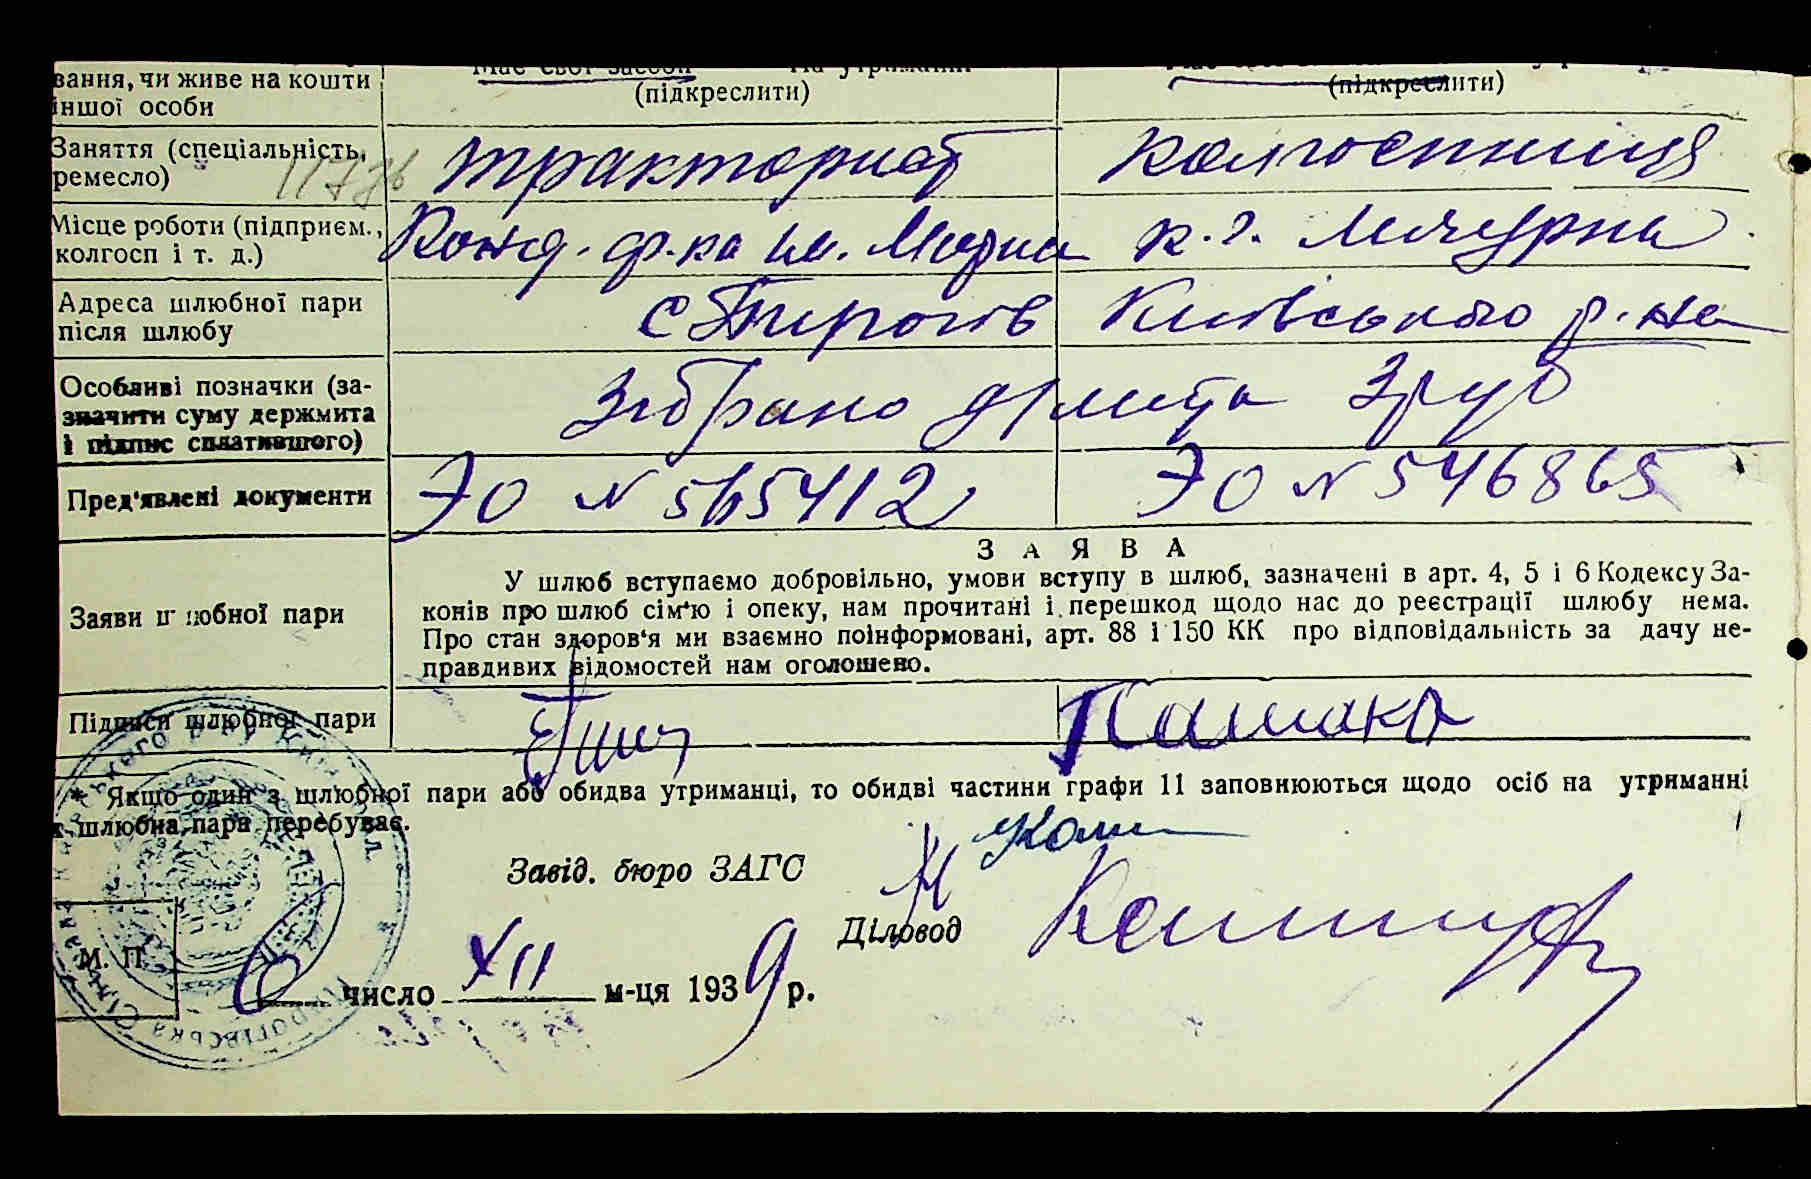 вання, чи живе на кошти Має свої засоби На утриманні
іншої особи (підкреслити) (підкреслити)
Заняття (спеціальність, тракторист колгоспниця
ремесло)
Місце роботи (підприєм., Конд. ф-ка ім. Маркса к. г. Мичурина
колгосп і т. д.)
Адреса шлюбної пари с Пирогів Київського р-на
після шлюбу
Особливі позначки (за-
значити суму держмита Зібрано д/мита 3 руб
і підпис сплатившого)
Пред'явлені документи ЭО № 565412 ЭО № 546865
З А Я В А
У шлюб вступаємо добровільно, умови вступу в шлюб, зазначені в арт. 4, 5 і 6 Кодексу За-
Заяви шлюбної пари конів про шлюб сім'ю і опеку, нам прочитані і перешкод щодо нас до реєстрації шлюбу нема.
Про стан здоров'я ми взаємно поінформовані, арт. 88 і 150 КК про відповідальність за дачу не-
правдивих відомостей нам оголошено.
Підписи шлюбної пари
* Якщо один з шлюбної пари або обидва утриманці, то обидві частини графи 11 заповнюються щодо осіб на утриманні
х шлюбна пара перебуває.
Завід. бюро ЗАГС
Діловод
М. П.
6 число XII м-ця 1939 р.